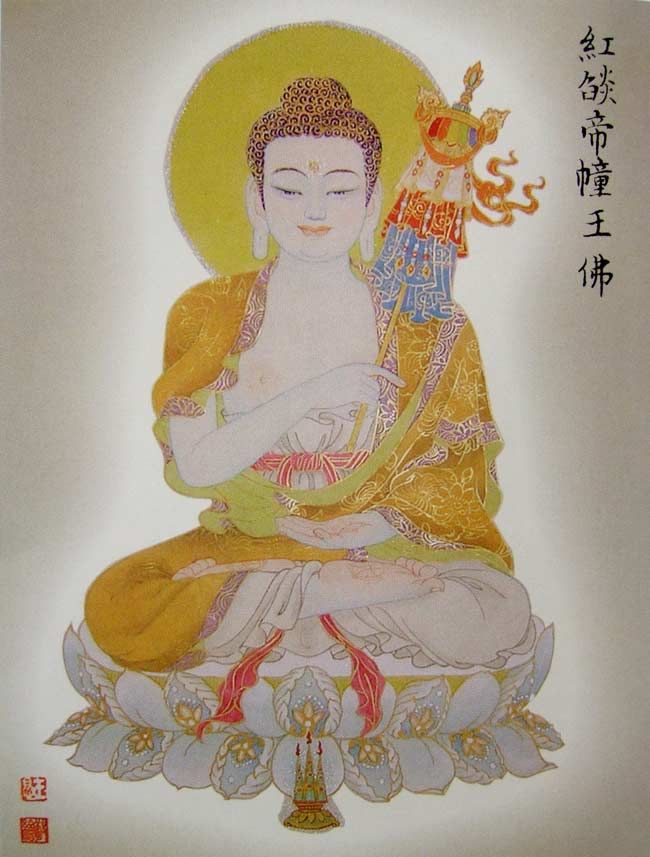 紅燄帝幢王佛